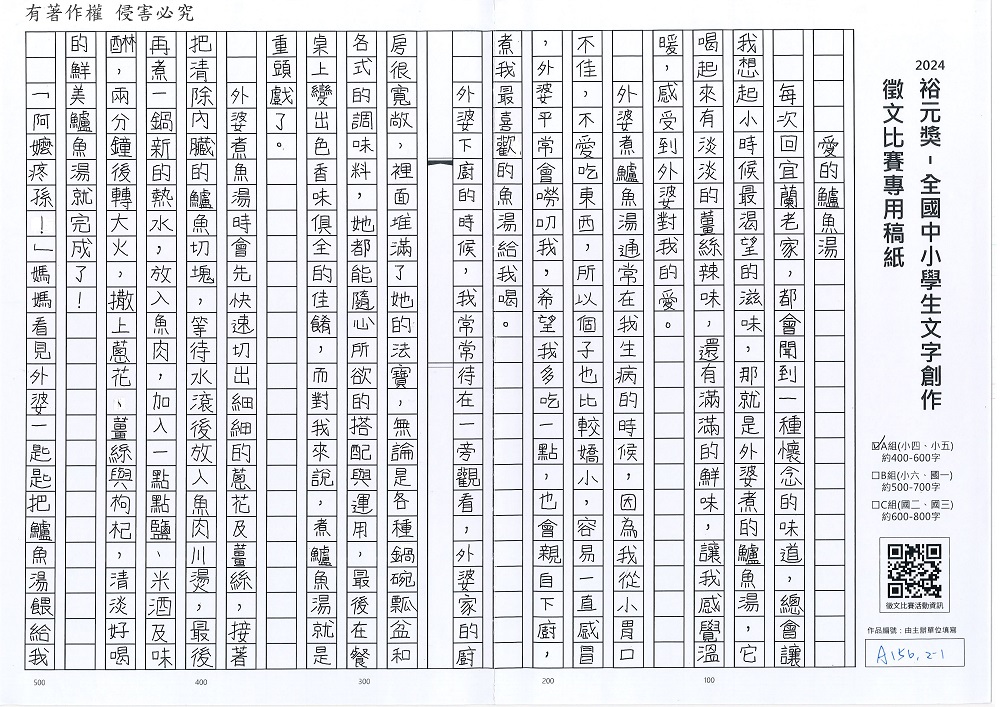 有著作權 侵害必究
2024
裕元獎-全國中小學生文字創作
徵文比賽專用稿紙
☑A組(小四、小五)
約400-600字
□B組(小六、國一)
約500-700字
□C組(國二、國三)
約600-800字
徵文比賽活動資訊
作品編號:由主辦單位填寫
A156.2-1
愛的鱸魚湯
每次回宜蘭老家,都會聞到一種懷念的味道,總會讓
我想起小時候最渴望的滋味,那就是外婆煮的鱸魚湯,它
喝起來有淡淡的薑絲辣味,還有滿滿的鮮味,讓我感覺溫
暖,感受到外婆對我的愛。
外婆煮鱸魚湯通常在我生病的時候,因為我從小胃口
不佳,不愛吃東西,所以個子也比較嬌小,容易一直感冒
,外婆平常會嘮叨我,希望我多吃一點,也會親自下廚,
煮我最喜歡的魚湯給我喝。
外婆下廚的時候,我常常待在一旁觀看,外婆家的廚
房很寬敞,裡面堆滿了她的法寶,無論是各種鍋碗瓢盆和
各式的調味料,她都能隨心所欲的搭配與運用,最後在餐
桌上變出色香味俱全的佳餚,而對我來說,煮鱸魚湯就是
重頭戲了。
外婆煮魚湯時會先快速切出細細的蔥花及薑絲,接著
把清除內臟的鱸魚切塊,等待水滾後放入魚肉川燙,最後
再煮一鍋新的熱水,放入魚肉,加入一點點鹽、米酒及味
醂,兩分鐘後轉大火,撒上蔥花、薑絲與枸杞,清淡好喝
的鮮美鱸魚湯就完成了!
「阿嬤疼孫!」媽媽看見外婆一匙匙把鱸魚湯餵給我
100
200
300
400
500